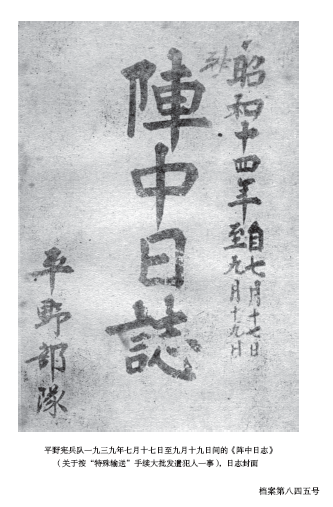 昭和十四年
自七月十七日
至九月十九日
陣中日誌
平野部隊
平野宪兵队一九三九年七月十七日至九月十九日间的《阵中日志》
（关于按“特殊输送”手续大批发遣犯人一事）。日志封面
档案第八四五号